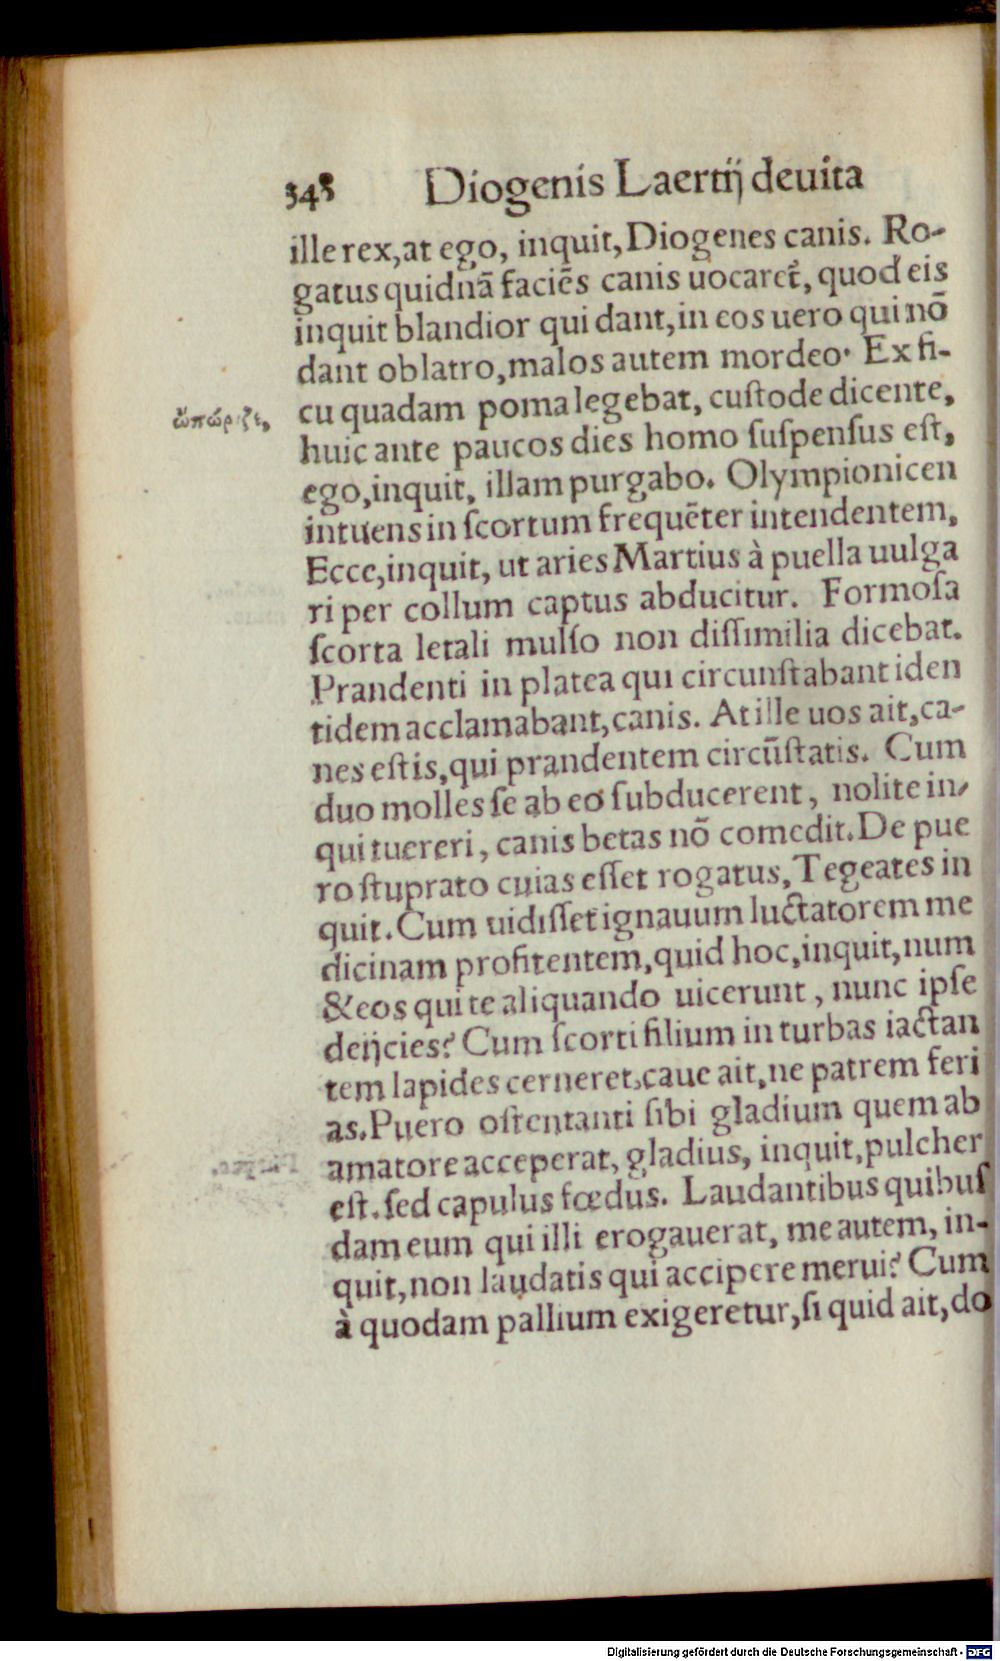 348 Diogenis Laertij deuita
ille rex, at ego, inquit, Diogenes canis. Ro-
gatus quidnā faciēs canis uocaret̃, quod eis
inquit blandior qui dant, in eos uero qui nō
dant oblatro, malos autem mordeo. Ex fi-
ὠπώριζε, cu quadam poma legebat, custode dicente,
huic ante paucos dies homo suspensus est,
ego, inquit, illam purgabo. Olympionicen
intuens in scortum frequēter intendentem,
Ecce, inquit, ut aries Martius à puella uulga
ri per collum captus abducitur. Formosa
scorta letali mulso non dissimilia dicebat.
Prandenti in platea qui circunstabant iden
tidem acclamabant, canis. At ille uos ait, ca-
nes estis, qui prandentem circūstatis. Cum
duo molles se ab eo subducerent, nolite in-
qui tuereri, canis betas nō comedit. De pue
ro stuprato cuias esset rogatus, Tegeates in
quit. Cum uidisset ignauum luctatorem me
dicinam profitentem, quid hoc, inquit, num
& eos qui te aliquando uicerunt, nunc ipse
deijcies? Cum scorti filium in turbas iactan
tem lapides cerneret, caue ait, ne patrem feri
as. Puero ostentanti sibi gladium quem ab
amatore acceperat, gladius, inquit, pulcher
est. sed capulus fœdus. Laudantibus quibus
dam eum qui illi erogauerat, me autem, in-
quit, non laudatis qui accipere merui? Cum
à quodam pallium exigeretur, si quid ait, do
Digitalisierung gefördert durch die Deutsche Forschungsgemeinschaft - DFG